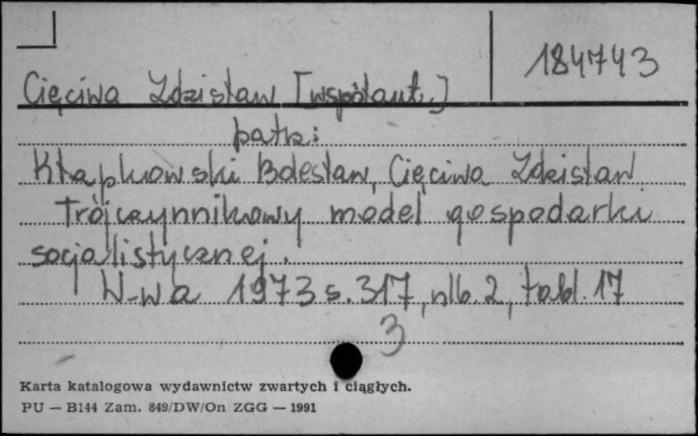 184743
Cięciwa Zdzisław [współaut.]
patrz:
Kłapkowski Bolesław, Cięciwa Zdzisław
Trójczynnikowy model gospodarki
socjalistycznej.
W-wa 1973 s. 317, nlb. 2, tabl. 17
3
Karta katalogowa wydawnictw zwartych i ciągłych.
PU — B144 Zam. 849/DW/On ZGG — 1991